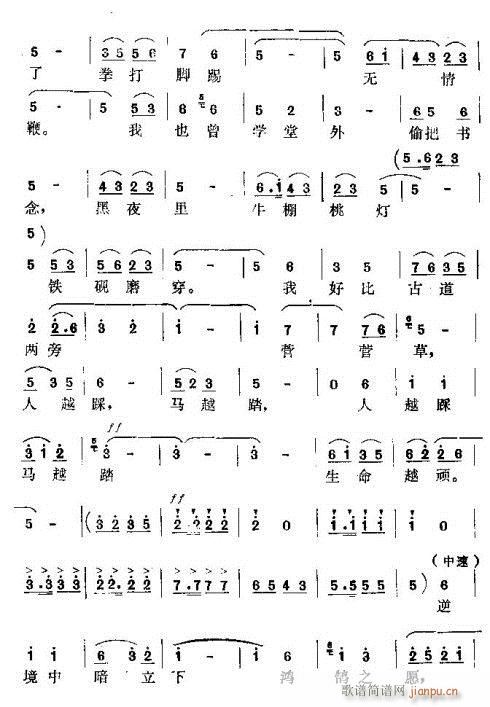 5 - 3 5 5 6 7 6 5 - 5 - 5 6 i 4 3 2 3
了 拳打 脚踢 无情
5 - 5 5 3 6 6 5 2 3 - 6 5 6
鞭。 我也曾 学堂外 偷把书
(5 .6 2 3
5 - 4 3 2 3 5 - 6 . i 4 3 2 3 5 -
念，黑夜里 牛棚桃灯
5)
5 5 3 5 6 2 3 5 - 5 6 3 5 7 6 3 5
铁砚磨穿。 我好比古道
2 2 . 6 3 2 i - i - 7 7 7 6 5 -
两旁 菅菅草，
5 3 5 5 - 5 2 3 5 - 0 6 i i
人越踩， 马越踏， 人越踩
ff
3 i 2 3 - 3 - 3 - 6 i 3 5 6 2 2 6
马越踏 生命越顽。
ff
5 - (3 2 3 5 2 . 2 2 2 2 0 i . i i i i 0
(中速)
3 . 3 3 3 2 2 . 2 2 7 . 7 7 7 6 5 4 3 5 . 5 5 5 5) 6
逆
i i 6 3 2 i - i 6 3 5 2 5 2 6
境中暗立下 鸿鹄之愿，
歌谱简谱网 jianpu.cn